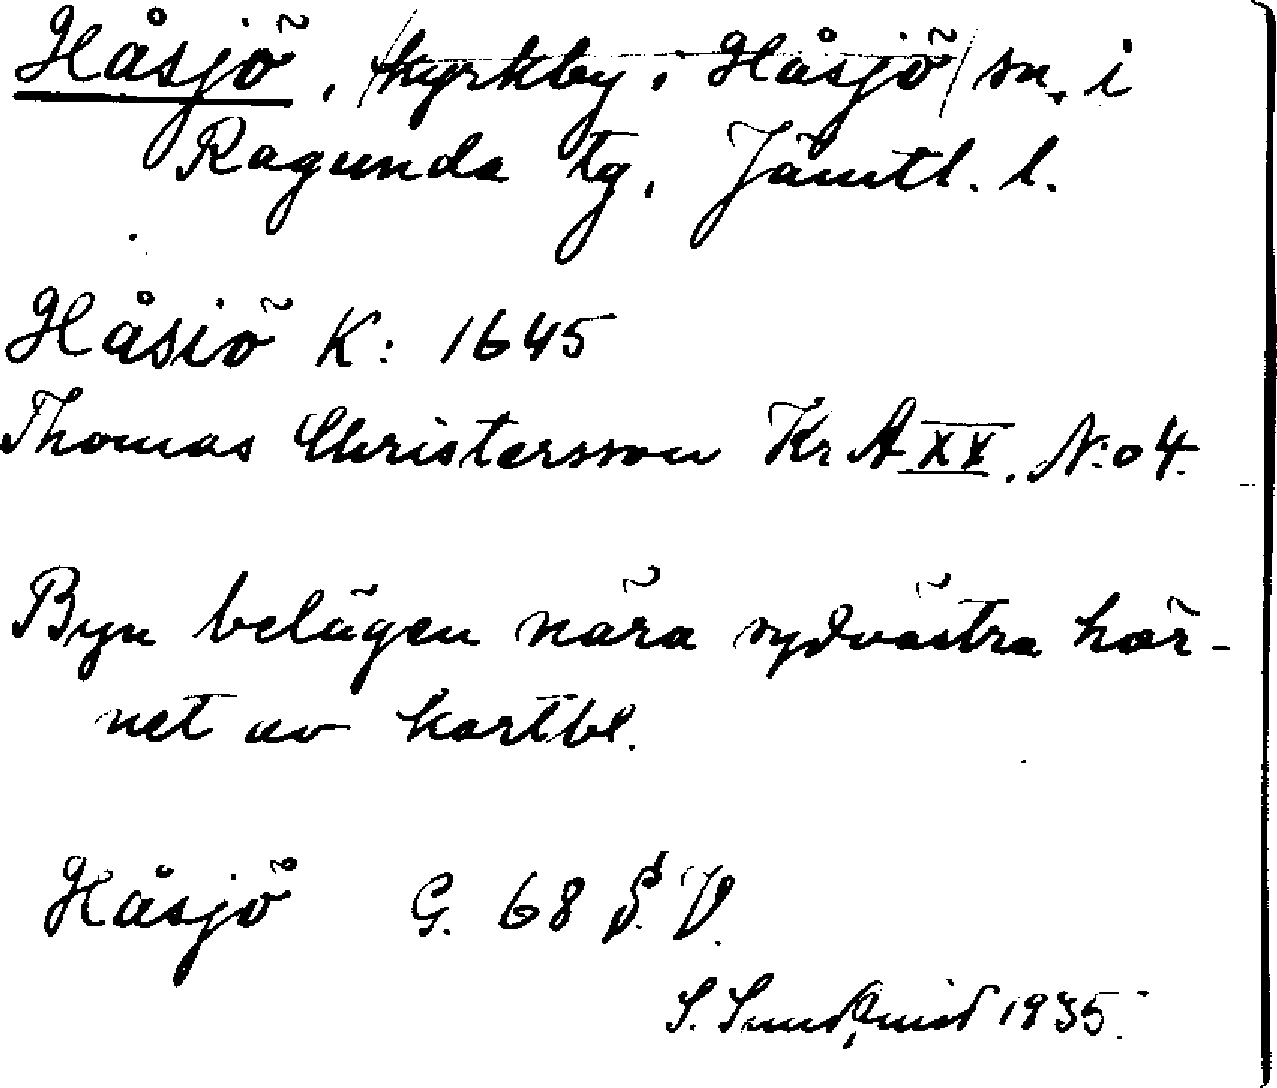 Håsjö, /kyrkby i Håsjö/ sn. i
Ragunda tg, Jämtl. l.
Håsiö K: 1645
Thomas Christersson Kr A XX. N:o 4.
Byn belägen nära sydvästra hör-
net av kartbl.
Håsjö G. 68 S. V.
S. Sundqvist 1935.